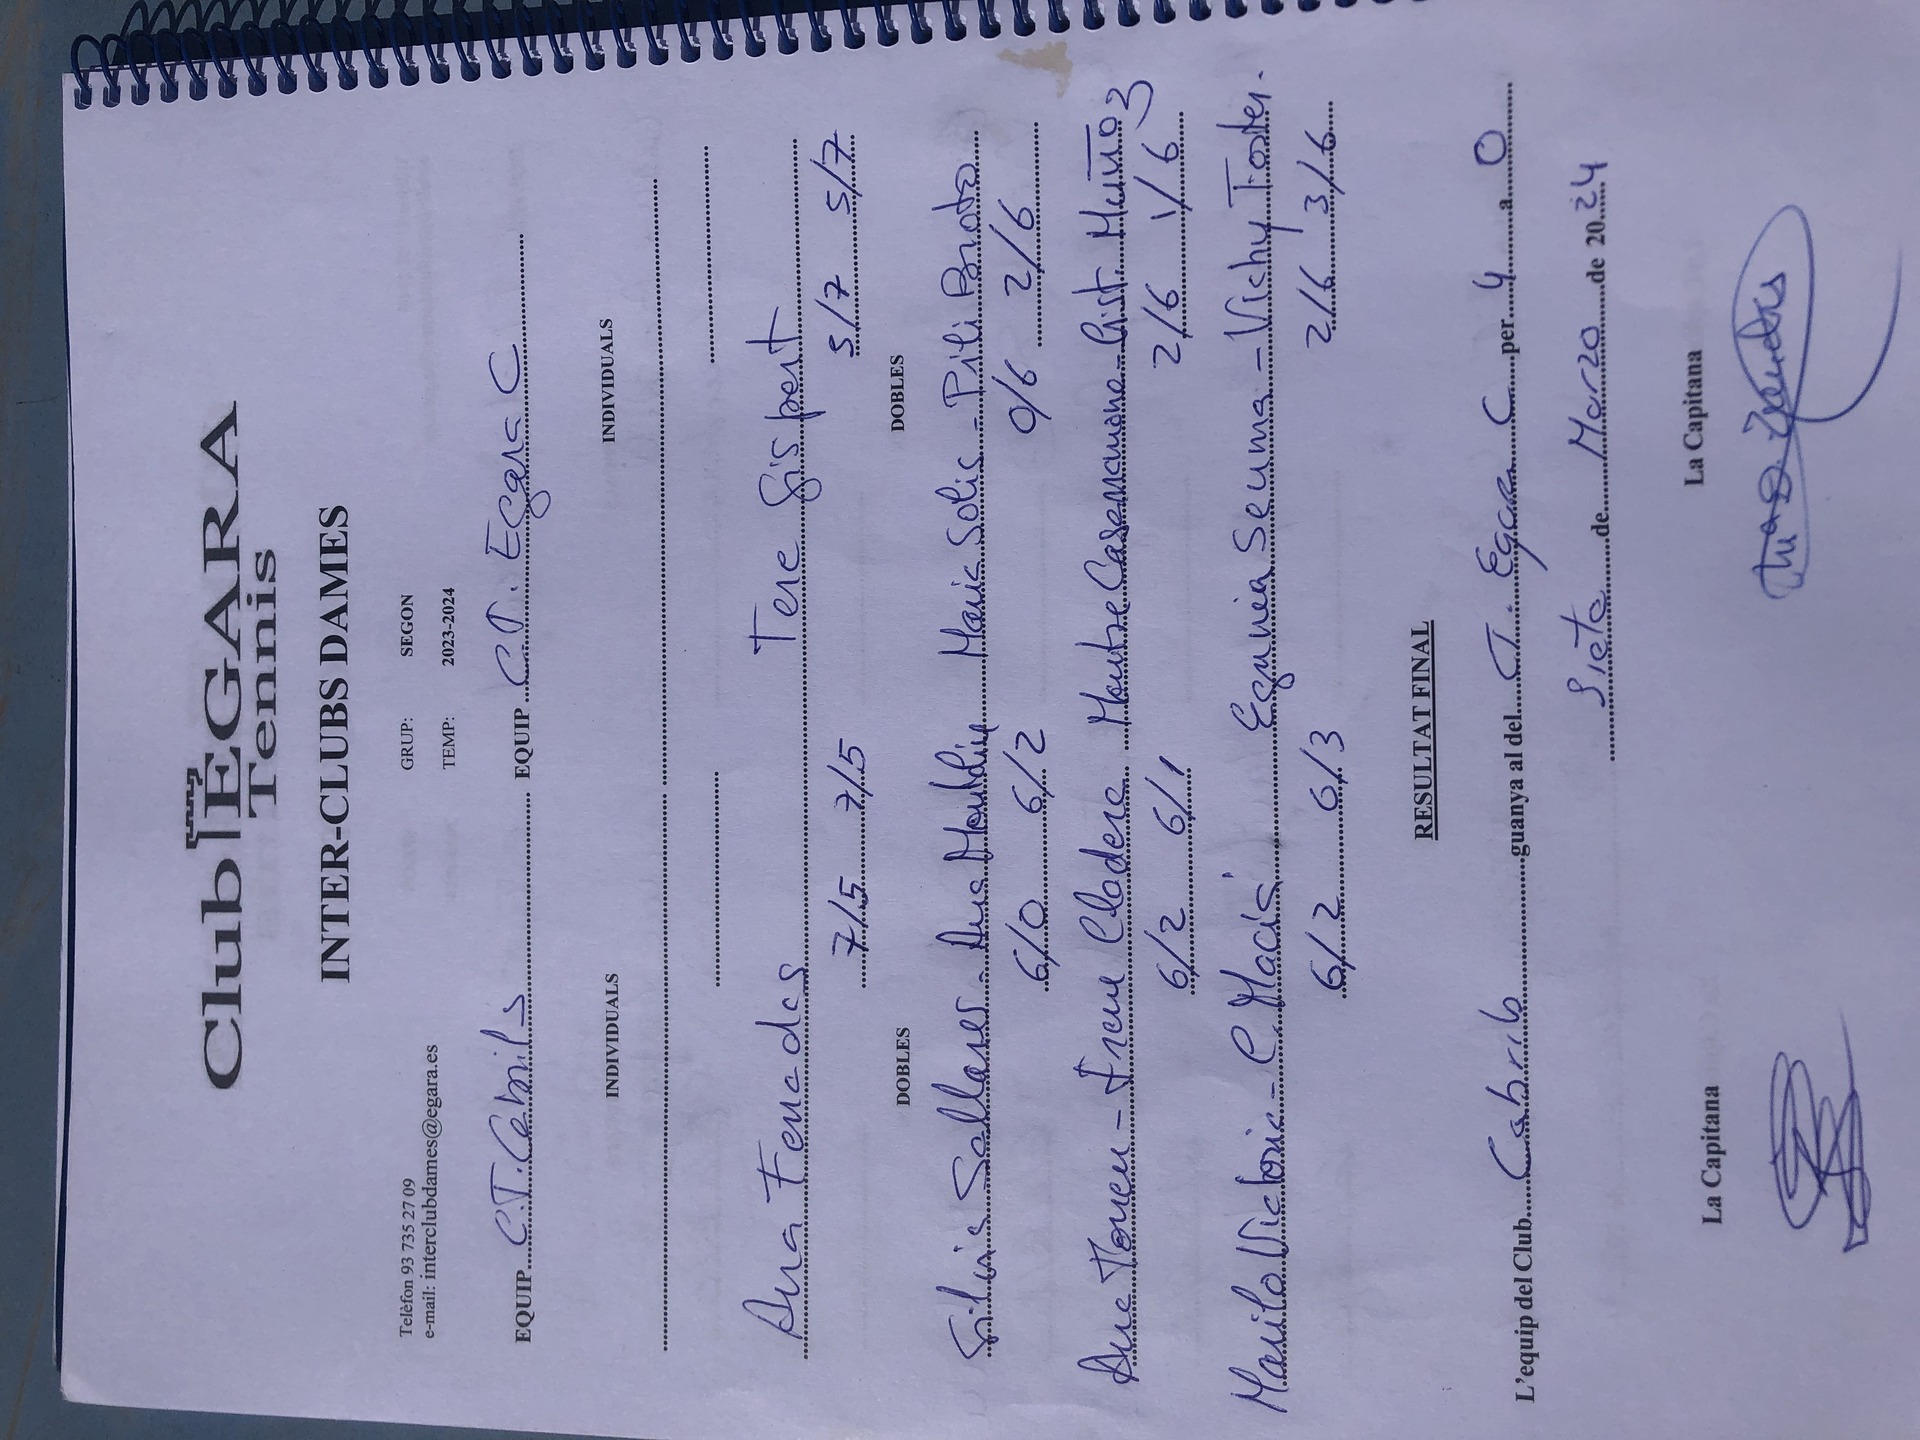 Club EGARA
Tennis
INTER-CLUBS DAMES
Telèfon 93 735 27 09 GRUP: SEGON
e-mail: interclubdames@egara.es TEMP: 2023-2024
EQUIP C.T. Cabrils EQUIP C.T. Egara C
INDIVIDUALS INDIVIDUALS
Ana Ferrades Tere Gispert
7/5 7/5 5/7 5/7
DOBLES DOBLES
Silvia Sallares - Ana Maria Solis - Pili Broto
6/0 6/2 0/6 2/6
Ane Torren - Irene Cladera Montse Casamano - Crist. Muñoz
6/2 6/1 2/6 1/6
Marilo Victoria - C. Maciá Egenia Seuma - Vichy Foster.
6/2 6/3 2/6 3/6
RESULTAT FINAL
L'equip del Club Cabrils guanya al del C T. Egara C per 4 a 0
Siete de Marzo de 2024
La Capitana La Capitana